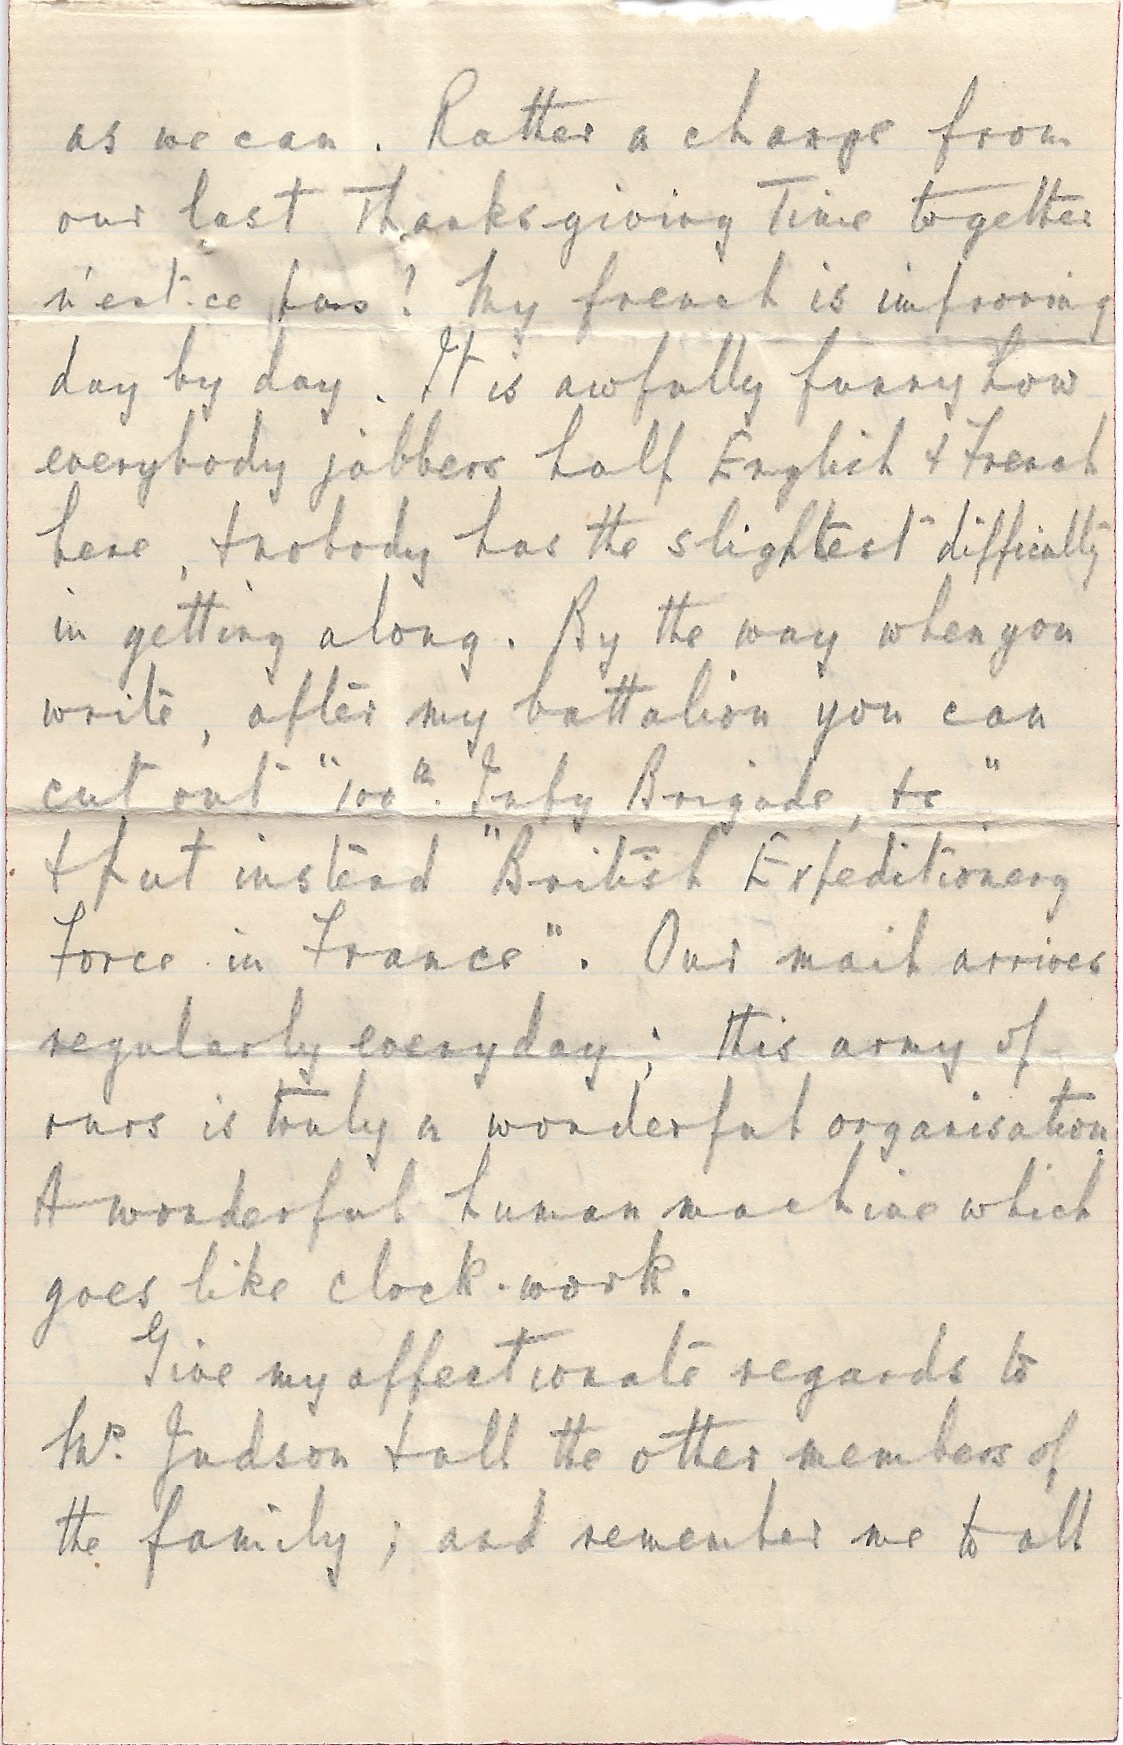 as we can. Rather a change from
our last Thanksgiving Time together
n'est-ce pas! My french is improving
day by day. It is awfully funny how
everybody jabbers half English & French
here, & nobody has the slightest difficulty
in getting along. By the way when you
write, after my battalion you can
cut out "100th. Infy Brigade, &c"
& put instead "British Expeditionery
Force in France". Our mail arrives
regularly everyday; this army of
ours is truly a wonderful organisation
A wonderful human machine which
goes like clock-work.
Give my affectionate regards to
Mr. Judson & all the other members of
the family; and remember me to all